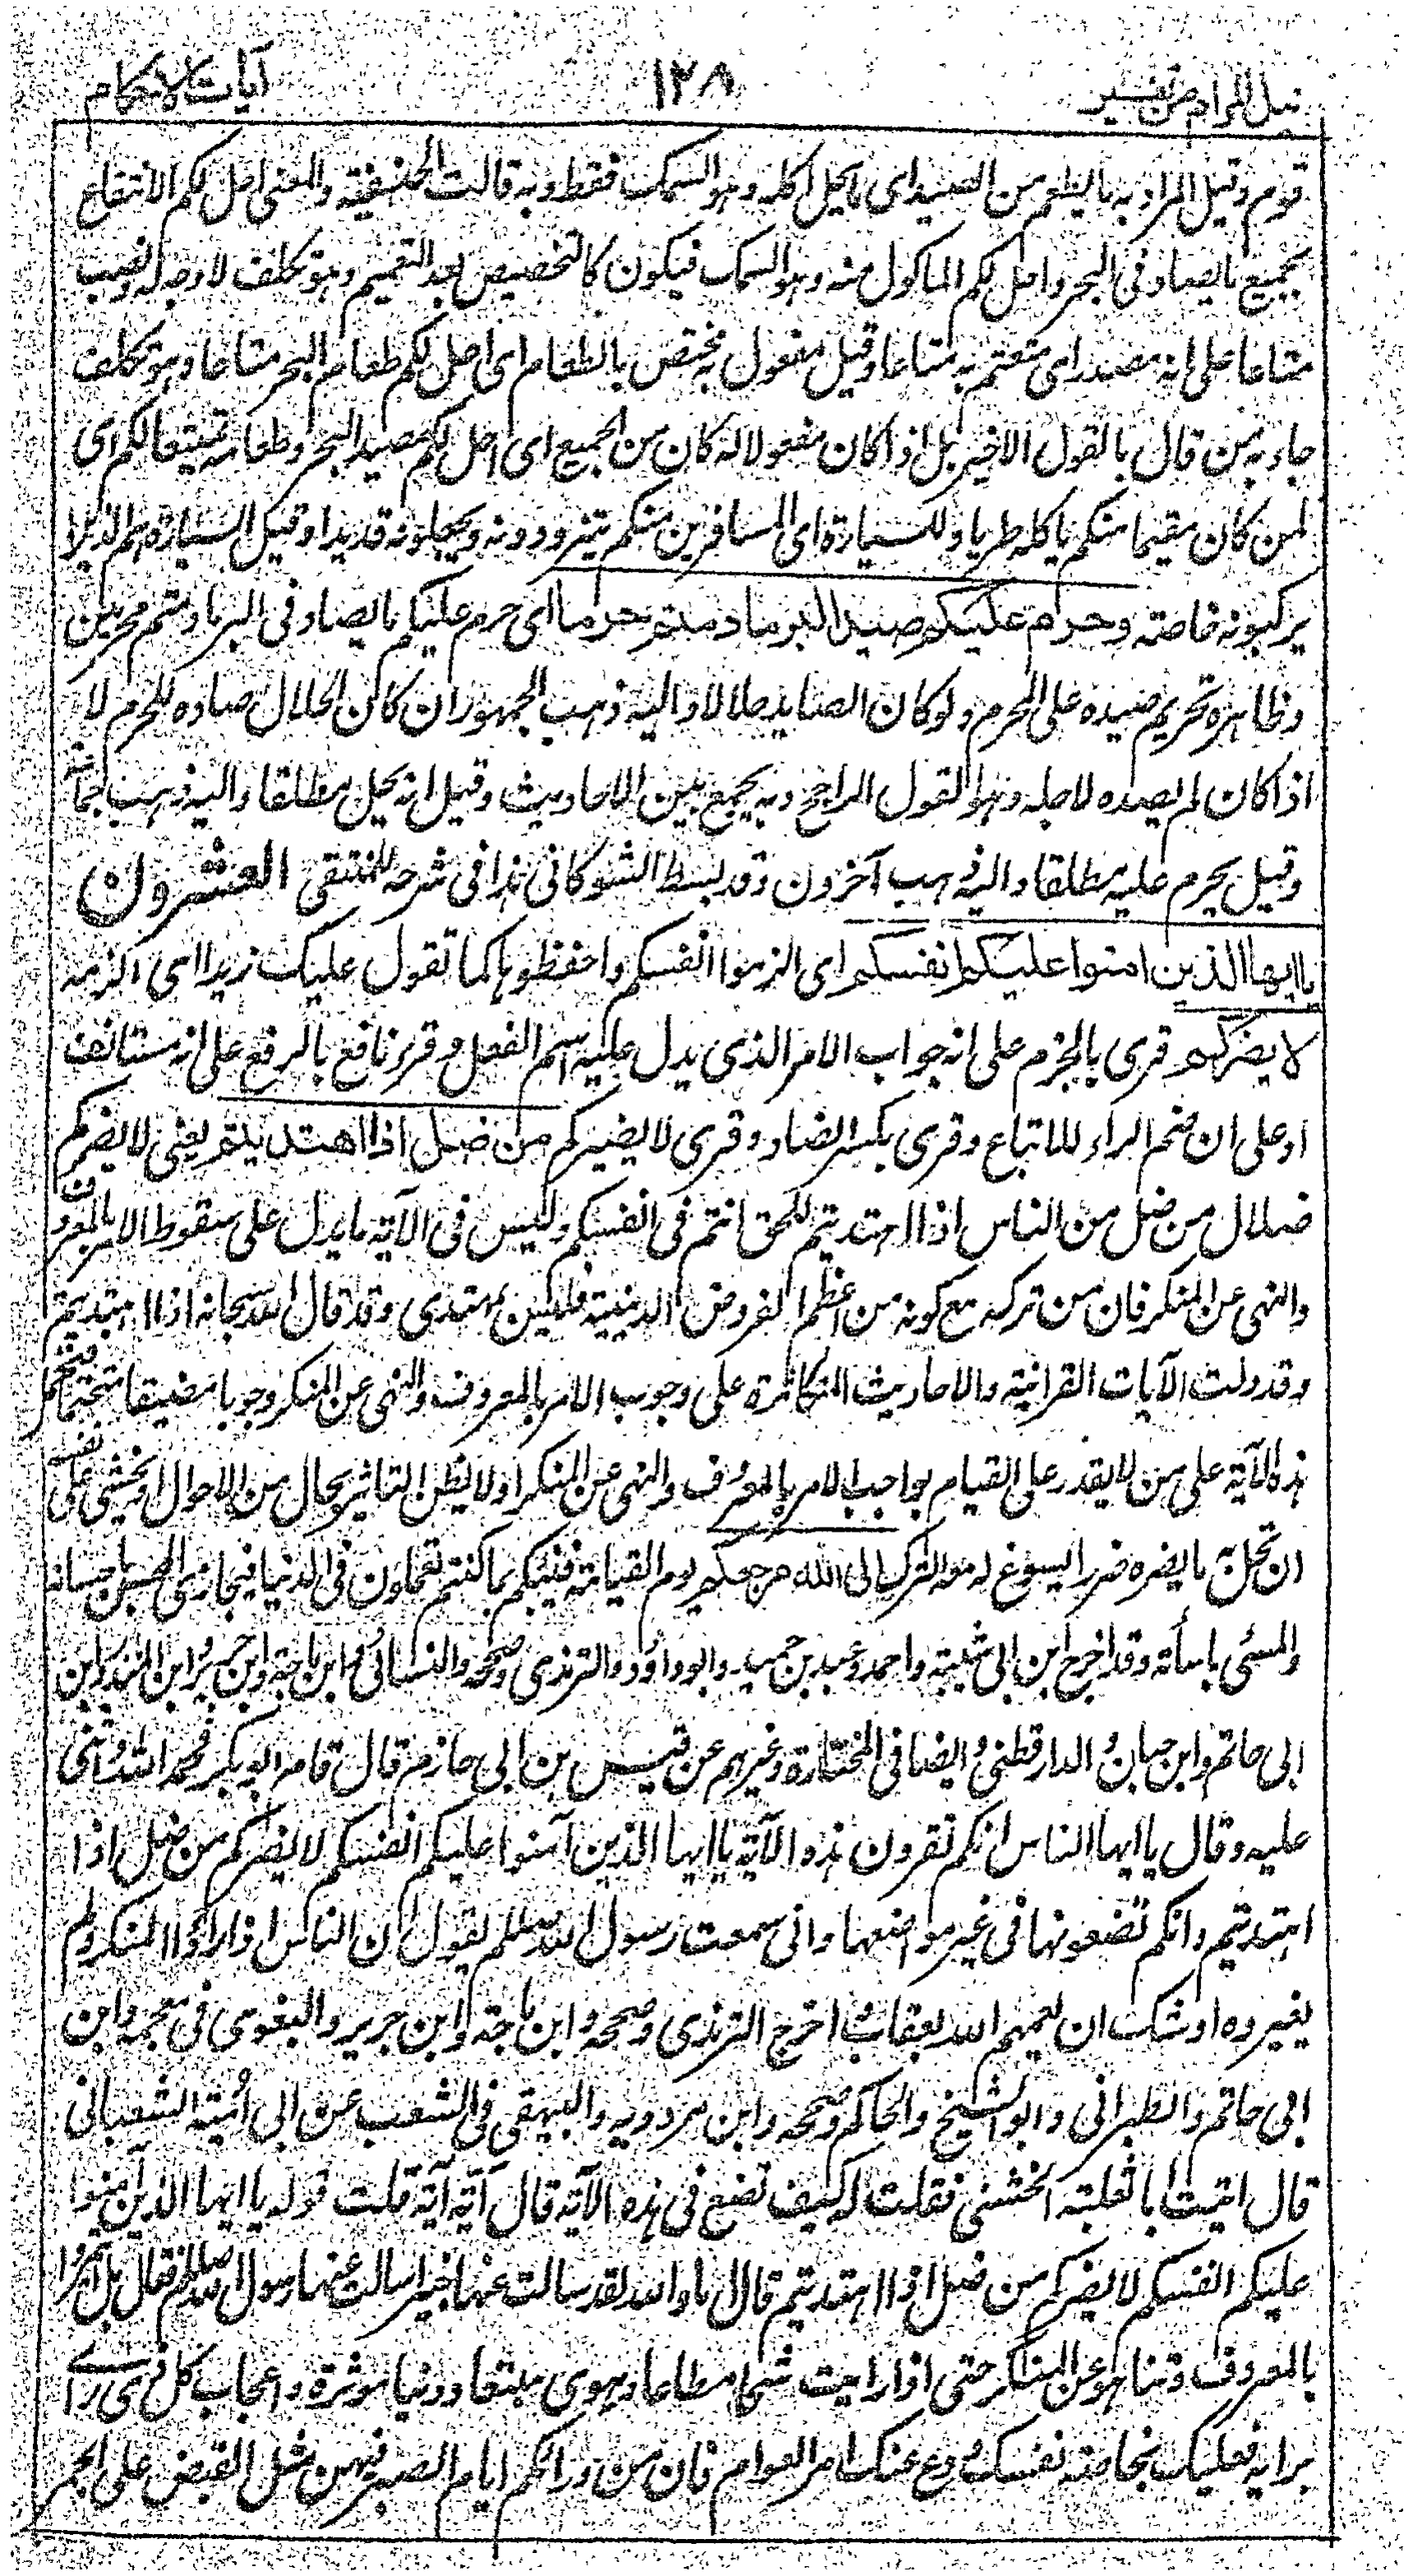 نيل المرام من تفسير ١٢٨ آيات الاحكام
قوم وقيل المراد به ما يطعم من الصيد اى ما يحل اكله وهو السمك فقط وبه قالت الحنفية والمعنى احل لكم الانتفاع
بجميع ما يصاد فى البحر واحل لكم الماكول منه وهو السمك فيكون كالتخصيص بعد التعميم وهو تكلف لا وجه له ونصب
متاعا على انه مصدر اى متعتم به متاعا وقيل مفعول به مختص بالطعام اى احل لكم طعام البحر متاعا وهو تكلف
جاء به من قال بالقول الاخير بل اذا كان مفعولا له كان من الجميع اى احل لكم مصيد البحر وطعامه تمتيعا لكم اى
لمن كان مقيما منكم ياكله طريا وللسيارة اى المسافرين منكم يتزودونه ويجعلونه قديدا وقيل السيارة هم الذين لا
يركبونه خاصة وحرم عليكم صيد البر ما دمتم حرما اى حرم عليكم ما يصاد فى البر ما دمتم محرمين
وظاهره تحريم صيده على المحرم ولو كان الصايد حلالا واليه ذهب الجمهور ان كان الحلال صاده للمحرم لا
اذا كان لم يصيده لاجله وهو القول الراجح وبه يجمع بين الاحاديث وقيل انه يحل مطلقا واليه ذهب جماعة
وقيل يحرم عليه مطلقا واليه ذهب آخرون وقد بسط الشوكانى هذا فى شرحه للمنتقى العشرون
يا ايها الذين امنوا عليكم انفسكم اى الزموا انفسكم واحفظوها كما تقول عليك زيدا اى الزمه
لا يضركم قرى بالجزم على انه جواب الامر الذى يدل عليه اسم الفعل وقرء نافع بالرفع على انه مستانف
او على ان ضم الراء للاتباع وقرى بكسر الضاد وقرى لا يضيركم من ضل اذا اهتديتم يعنى لا يضركم
ضلال من ضل من الناس اذا اهتديتم للحق انتم فى انفسكم وليس فى الآية ما يدل على سقوط الامر بالمعروف
والنهى عن المنكر فان من تركه مع كونه من اعظم الفروض الدينية فليس بمهتدى وقد قال الله سبحانه اذا اهتديتم
وقد دلت الآيات القرانية والاحاديث المتكاثرة على وجوب الامر بالمعروف والنهى عن المنكر وجوبا مضيقا متحتما فتحمل
هذه الآية على من لا يقدر على القيام بواجب الامر بالمعروف والنهى عن المنكر او لا يظن التاثير بحال من الاحوال او يخشى على نفسه
ان يحل به ما يضره ضررا يسوغ له معه الترك الى الله مرجعكم يوم القيامة فينبئكم بما كنتم تعملون فى الدنيا فيجازى المحسن باحسانه
والمسئى باساءته وقد اخرج ابن ابى شيبة واحمد وعبد بن حميد وابو داؤد والترمذى وصححه والنسائى وابن ماجة وابن جرير وابن المنذر وابن
ابى حاتم وابن حبان والدارقطنى والضيا فى المختارة وغيرهم عن قيس بن ابى حازم قال قام ابو بكر فحمد الله واثنى
عليه وقال يا ايها الناس انكم تقرون هذه الآية يا ايها الذين آمنوا عليكم انفسكم لا يضركم من ضل اذا
اهتديتم وانكم تضعونها فى غير مواضعها وانى سمعت رسول الله صلعم يقول ان الناس اذا راوا المنكر ولم
يغيروه اوشك ان يعمهم الله بعقاب واخرج الترمذى وصححه وابن ماجة وابن جرير والبغوى فى معجمه وابن
ابى حاتم والطبرانى وابو الشيخ والحاكم وصححه وابن مردويه والبيهقى فى الشعب عن ابى امية الشعبانى
قال اتيت ابا ثعلبة الخشنى فقلت له كيف تصنع فى هذه الآية قال آية آية قلت قوله يا ايها الذين آمنوا
عليكم انفسكم لا يضركم من ضل اذا اهتديتم قال اما والله لقد سالت عنها خبيرا سالت عنها رسول الله صلعم فقال بل ائتمروا
بالمعروف وتناهوا عن المنكر حتى اذا رايت شحا مطاعا وهوى متبعا ودنيا موثرة واعجاب كل ذى راى
برايه فعليك بخاصة نفسك ودع عنك امر العوام فان من ورائكم ايام الصبر فيهن مثل القبض على الجمر